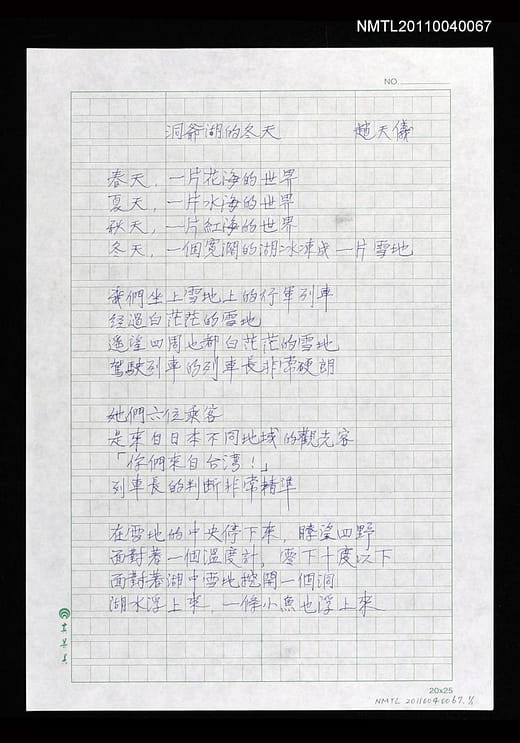 NMTL20110040067
NO.
洞爺湖的冬天 趙天儀
春天，一片花海的世界
夏天，一片水海的世界
秋天，一片紅海的世界
冬天，一個寬闊的湖冰凍成一片雪地
我們坐上雪地上的行軍列車
經過白茫茫的雪地
遙望四周也都白茫茫的雪地
駕駛列車的列車長非常硬朗
她們六位乘客
是來自日本不同地域的觀光客
「你們來自台湾！」
列車長的判断非常精準
在雪地的中央停下來，瞭望四野
面對著一個溫度計，零下十度以下
面對著湖中雪地挖開一個洞
湖水浮上來，一條小魚也浮上來
20x25
NMTL 20110040067.1/1